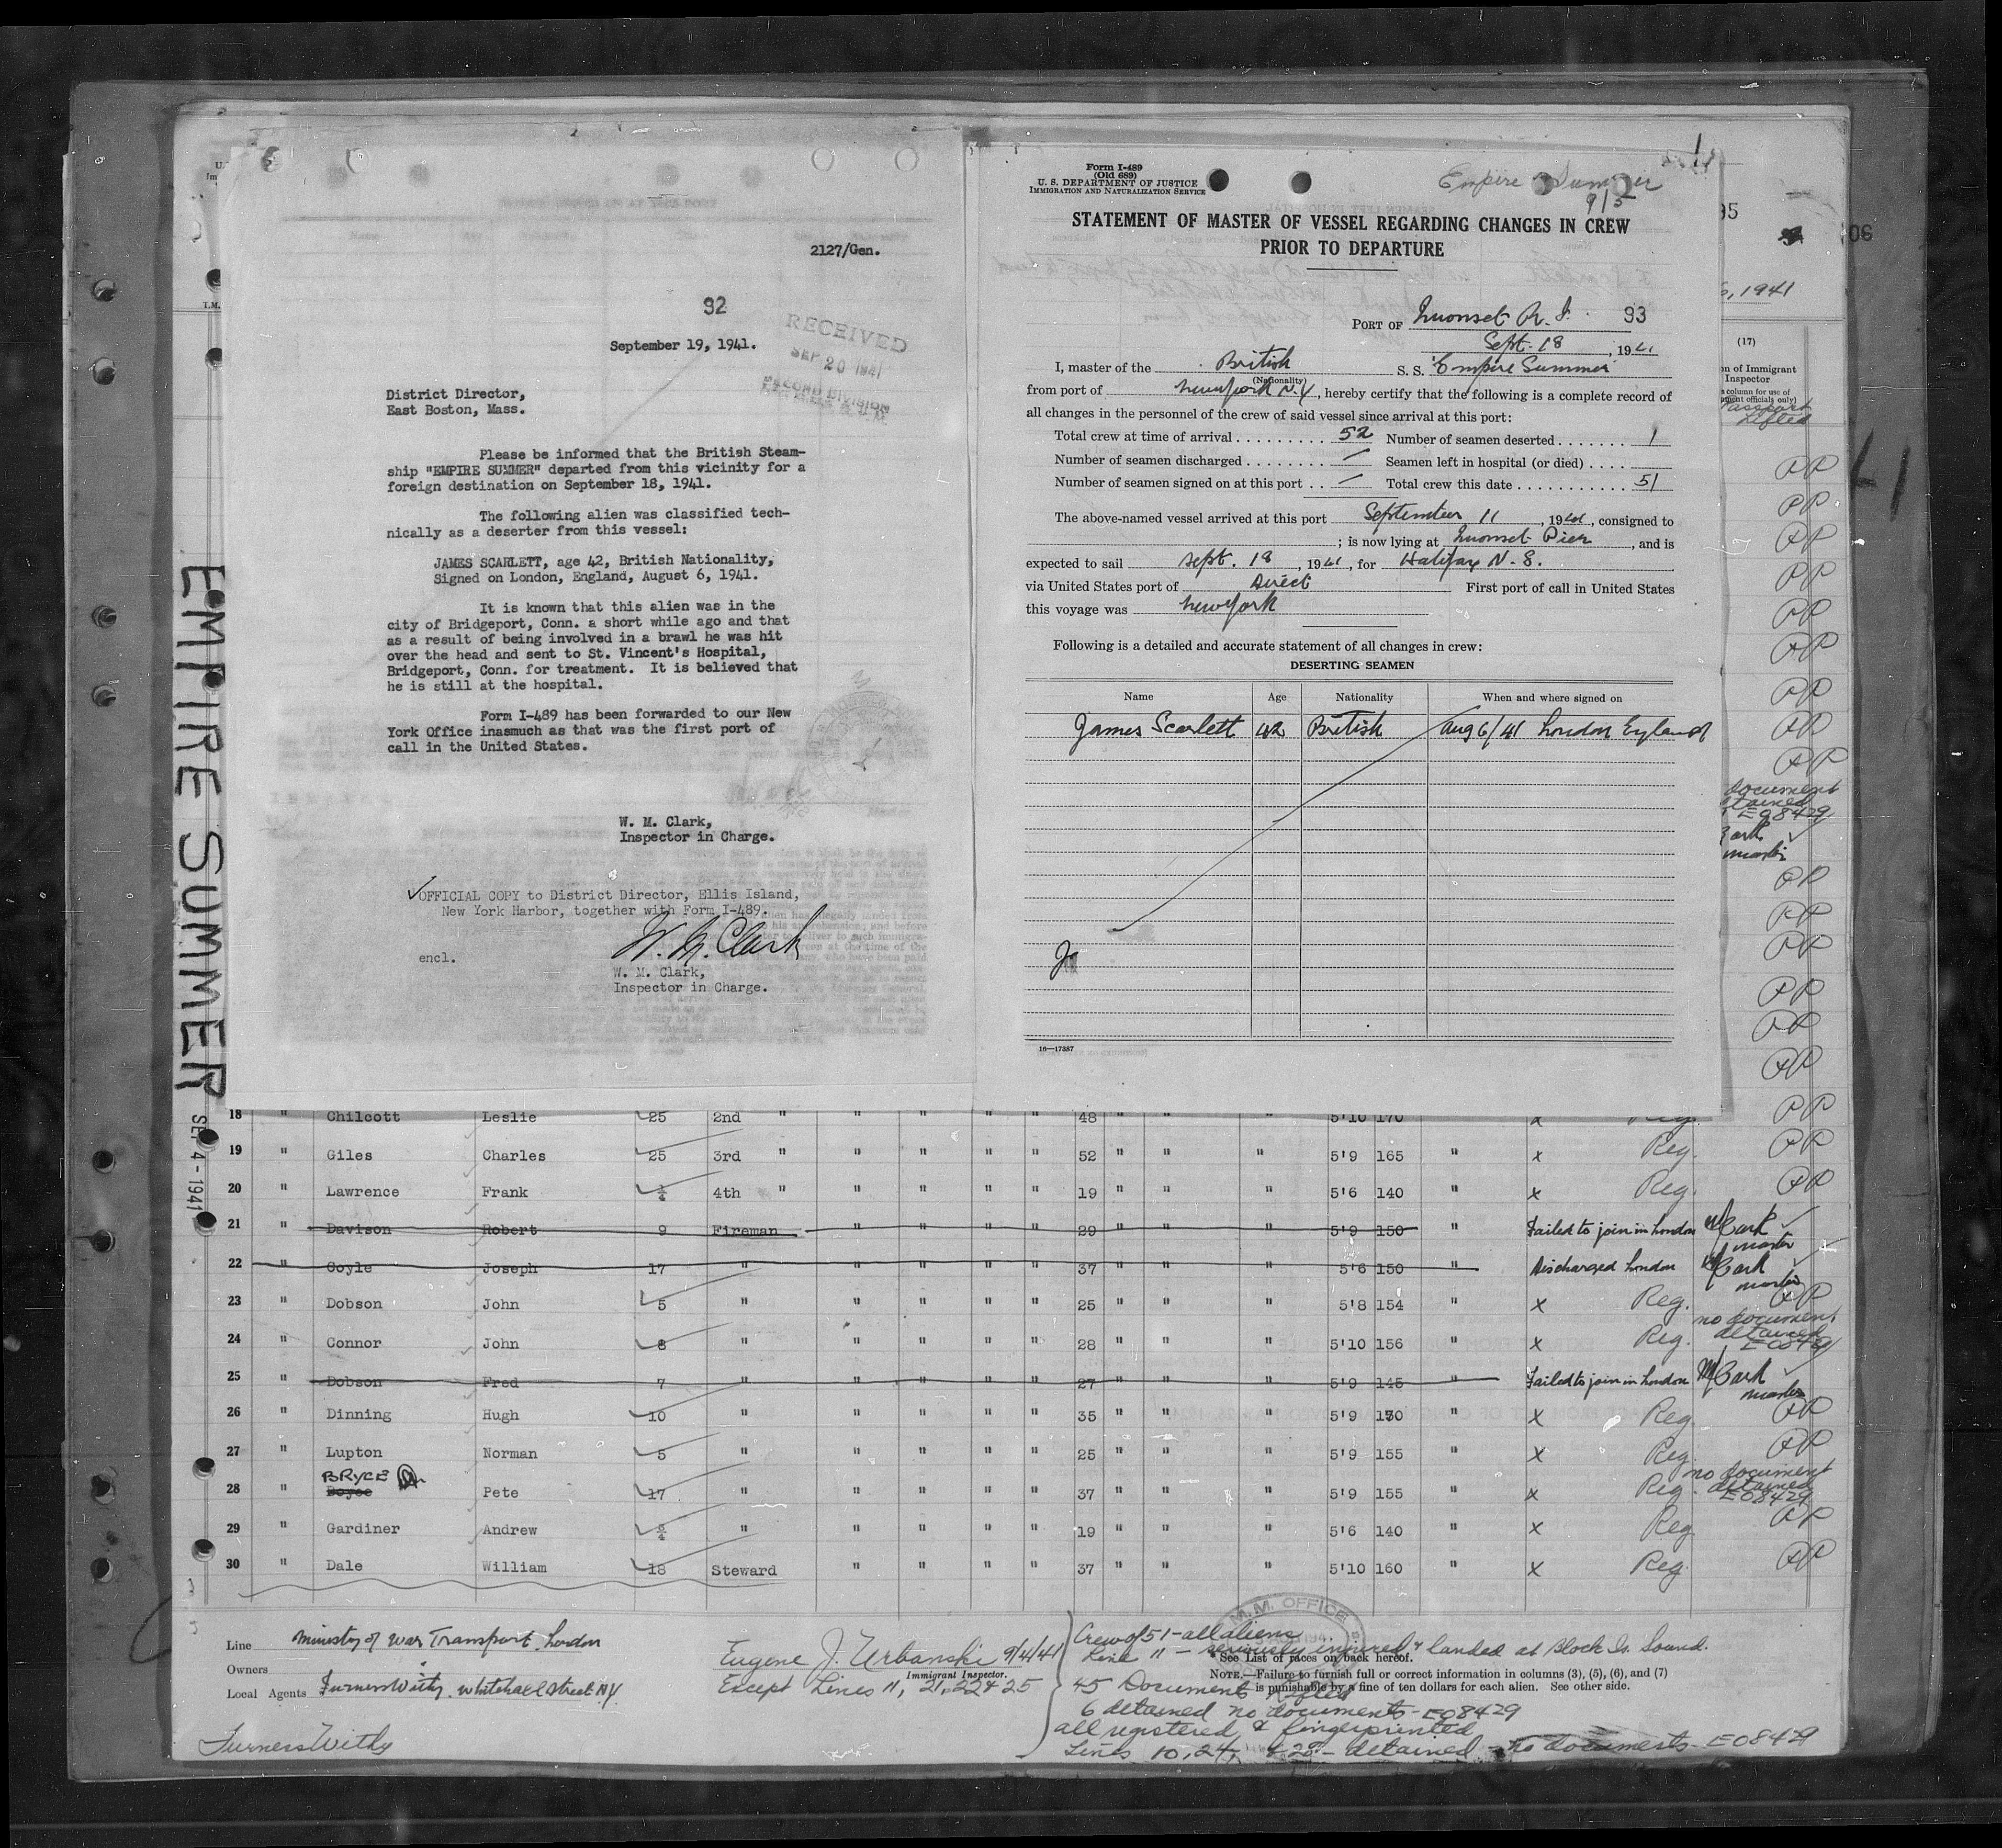 EMPIRE SUMMER
SEP 4-1941
2127/Gen.
92
September 19, 1941.
RECEIVED
SEP 20 1941
RECORD DIVISION
District Director,
East Boston, Mass.
Please be informed that the British Steam-
ship "EMPIRE SUMMER" departed from this vicinity for a
foreign destination on September 18, 1941.
The following alien was classified tech-
nically as a deserter from this vessel:
JAMES SCARLETT, age 42, British Nationality,
Signed on London, England, August 6, 1941.
It is known that this alien was in the
city of Bridgeport, Conn. a short while ago and that
as a result of being involved in a brawl he was hit
over the head and sent to St. Vincent's Hospital,
Bridgeport, Conn. for treatment. It is believed that
he is still at the hospital.
Form I-489 has been forwarded to our New
York Office inasmuch as that was the first port of
call in the United States.
W. M. Clark,
Inspector in Charge.
OFFICIAL COPY to District Director, Ellis Island,
New York Harbor, together with Form I-489.
W. M. Clark
encl.
W. M. Clark,
Inspector in Charge.
Form I-489
(Old 689)
U. S. DEPARTMENT OF JUSTICE
IMMIGRATION AND NATURALIZATION SERVICE
Empire Summer
9/3
STATEMENT OF MASTER OF VESSEL REGARDING CHANGES IN CREW
PRIOR TO DEPARTURE
PORT OF Quonset R. I. 93
Sept. 18, 1941
I, master of the British S. S. Empire Summer
(Nationality)
from port of New York N.Y, hereby certify that the following is a complete record of
all changes in the personnel of the crew of said vessel since arrival at this port:
Total crew at time of arrival 52 Number of seamen deserted 1
Number of seamen discharged — Seamen left in hospital (or died)
Number of seamen signed on at this port — Total crew this date 51
The above-named vessel arrived at this port September 11, 1941, consigned to
; is now lying at Quonset Pier, and is
expected to sail Sept. 18, 1941, for Halifax N. S.
via United States port of Direct First port of call in United States
this voyage was New York
Following is a detailed and accurate statement of all changes in crew:
DESERTING SEAMEN
Name Age Nationality When and where signed on
James Scarlett 42 British Aug 6/41 London England
Ja
16—17387
95
06
6, 1941
(17)
on of Immigrant
Inspector
Passport
Lifted
document
E08429
master
18 " Chilcott Leslie 25 2nd " " " " " 48 " " " 5'10 170
19 " Giles Charles 25 3rd " " " " " 52 " " " 5'9 165 " x Reg. PP
20 " Lawrence Frank 4th " " " " " 19 " " " 5'6 140 " x Reg. PP
21 " Davison Robert 9 Fireman " " " " 29 " " " 5'9 150 " Failed to join in London master
22 " Coyle Joseph 17 " " " " " 37 " " " 5'6 150 " Discharged London master
23 " Dobson John 5 " " " " " 25 " " " 5'8 154 " x Reg. PP
24 " Connor John 8 " " " " " 28 " " " 5'10 156 " x Reg. no document detained E08429
25 " Dobson Fred 7 " " " " " 27 " " " 5'9 145 " Failed to join in London master
26 " Dinning Hugh 10 " " " " " 35 " " " 5'9 150 " x Reg. PP
27 " Lupton Norman 5 " " " " " 25 " " " 5'9 155 " x Reg. PP
BRYCE
28 " Boyce Pete 17 " " " " " 37 " " " 5'9 155 " x Reg. no document detained E08429
29 " Gardiner Andrew " " " " " 19 " " " 5'6 140 " x Reg PP
30 " Dale William 18 Steward " " " " 37 " " " 5'10 160 " x Reg. PP
Line Ministry of War Transport London
Owners
Local Agents Furness Withy. Whitehall Street NY
Furness Withy
Eugene J. Urbanski 9/4/41
Immigrant Inspector.
Except Lines 11, 21, 22 & 25
Crew of 51 - all aliens
Line 11 - seriously injured & landed at Block Is. Sound.
See List of races on back hereof.
NOTE.—Failure to furnish full or correct information in columns (3), (5), (6), and (7)
is punishable by a fine of ten dollars for each alien. See other side.
45 Documents lifted
6 detained no documents - E08429
all registered & fingerprinted
Lines 10, 24, & 28 - detained - no documents - E08429
M. M. OFFICE